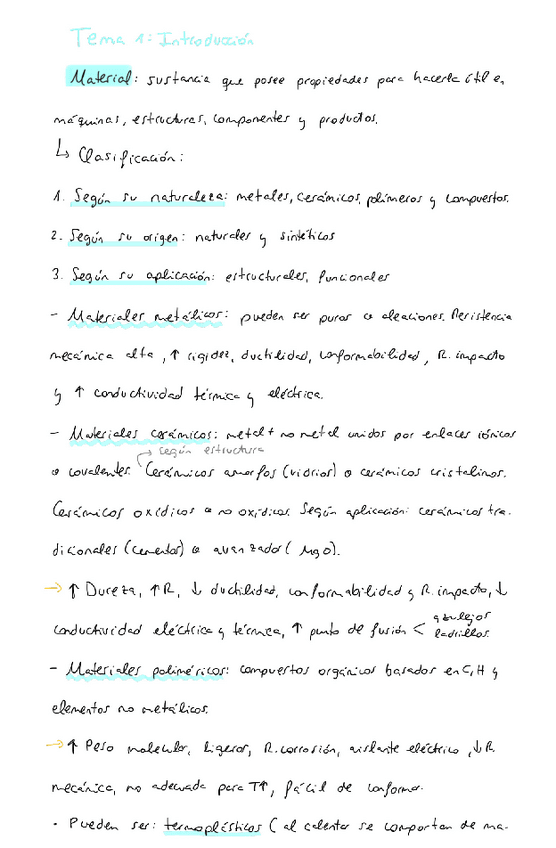 Tema 1: Introducción
Material: sustancia que posee propiedades para hacerla útil en
máquinas, estructuras, componentes y productos.
↳ Clasificación:
1. Según su naturaleza: metales, cerámicos, polímeros y compuestos.
2. Según su origen: naturales y sintéticos
3. Según su aplicación: estructurales, funcionales
- Materiales metálicos: pueden ser puros o aleaciones. Resistencia
mecánica alta, ↑ rigidez, ductilidad, conformabilidad, R. impacto
y ↑ conductividad térmica y eléctrica.
- Materiales cerámicos: metal + no metal unidos por enlaces iónicos
→ según estructura
o covalentes. Cerámicos amorfos (vidrios) o cerámicos cristalinos.
Cerámicos oxídicos o no oxídicos. Según aplicación: cerámicos tra-
dicionales (cementos) o avanzados (MgO).
→ ↑ Dureza, ↑R, ↓ ductilidad, conformabilidad y R. impacto, ↓
conductividad eléctrica y térmica, ↑ punto de fusión < azulejos
ladrillos.
- Materiales poliméricos: compuestos orgánicos basados en C, H y
elementos no metálicos.
→ ↑ Peso molecular, ligeros, R. corrosión, aislante eléctrico, ↓R
mecánica, no adecuada para T↑, fácil de conformar.
· Pueden ser: termoplásticos (al calentar se comportan de ma-